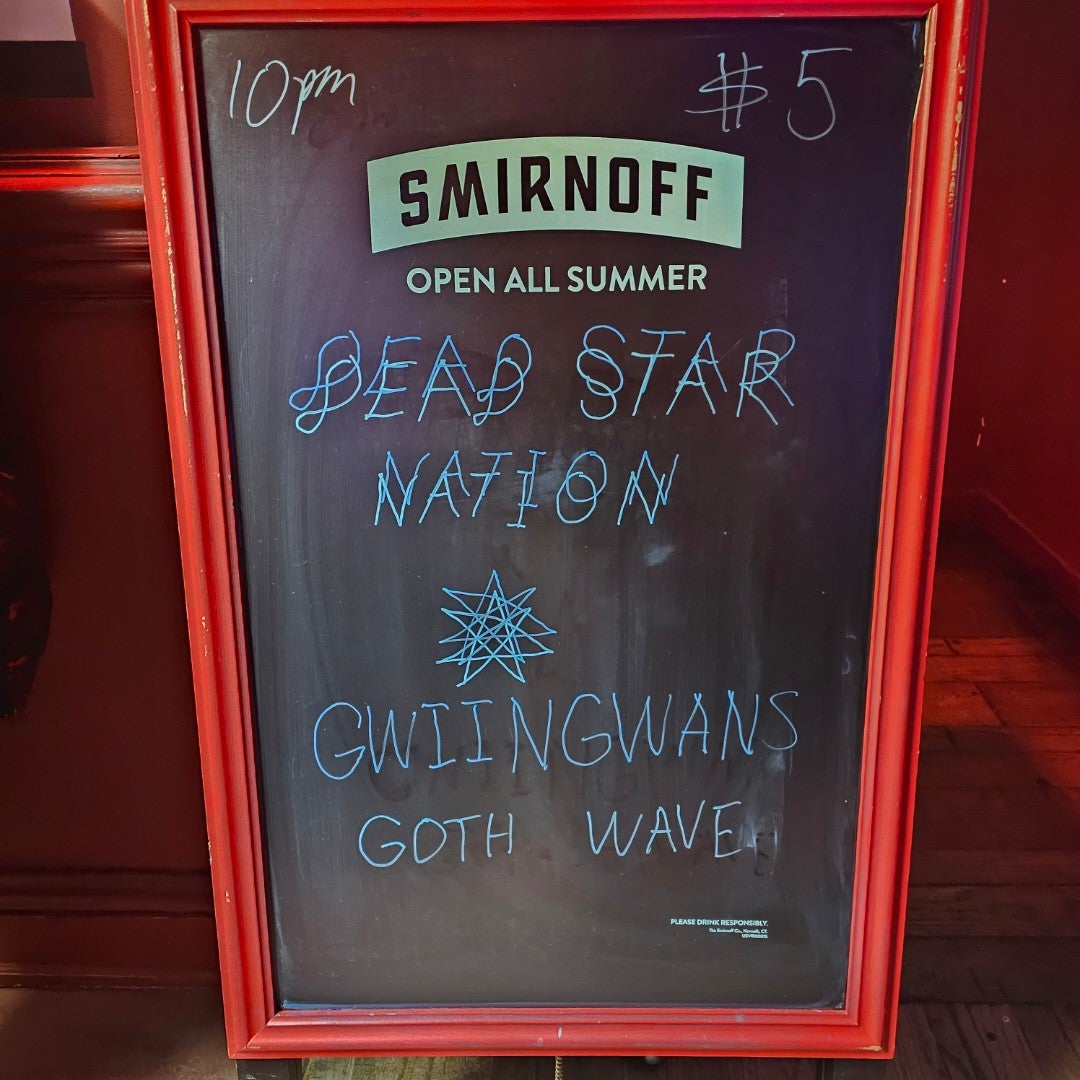 10pm $5
SMIRNOFF
OPEN ALL SUMMER
DEAD STAR
NATION
GWIINGWANS
GOTH WAVE
PLEASE DRINK RESPONSIBLY.
The Smirnoff Co., Norwalk, CT.